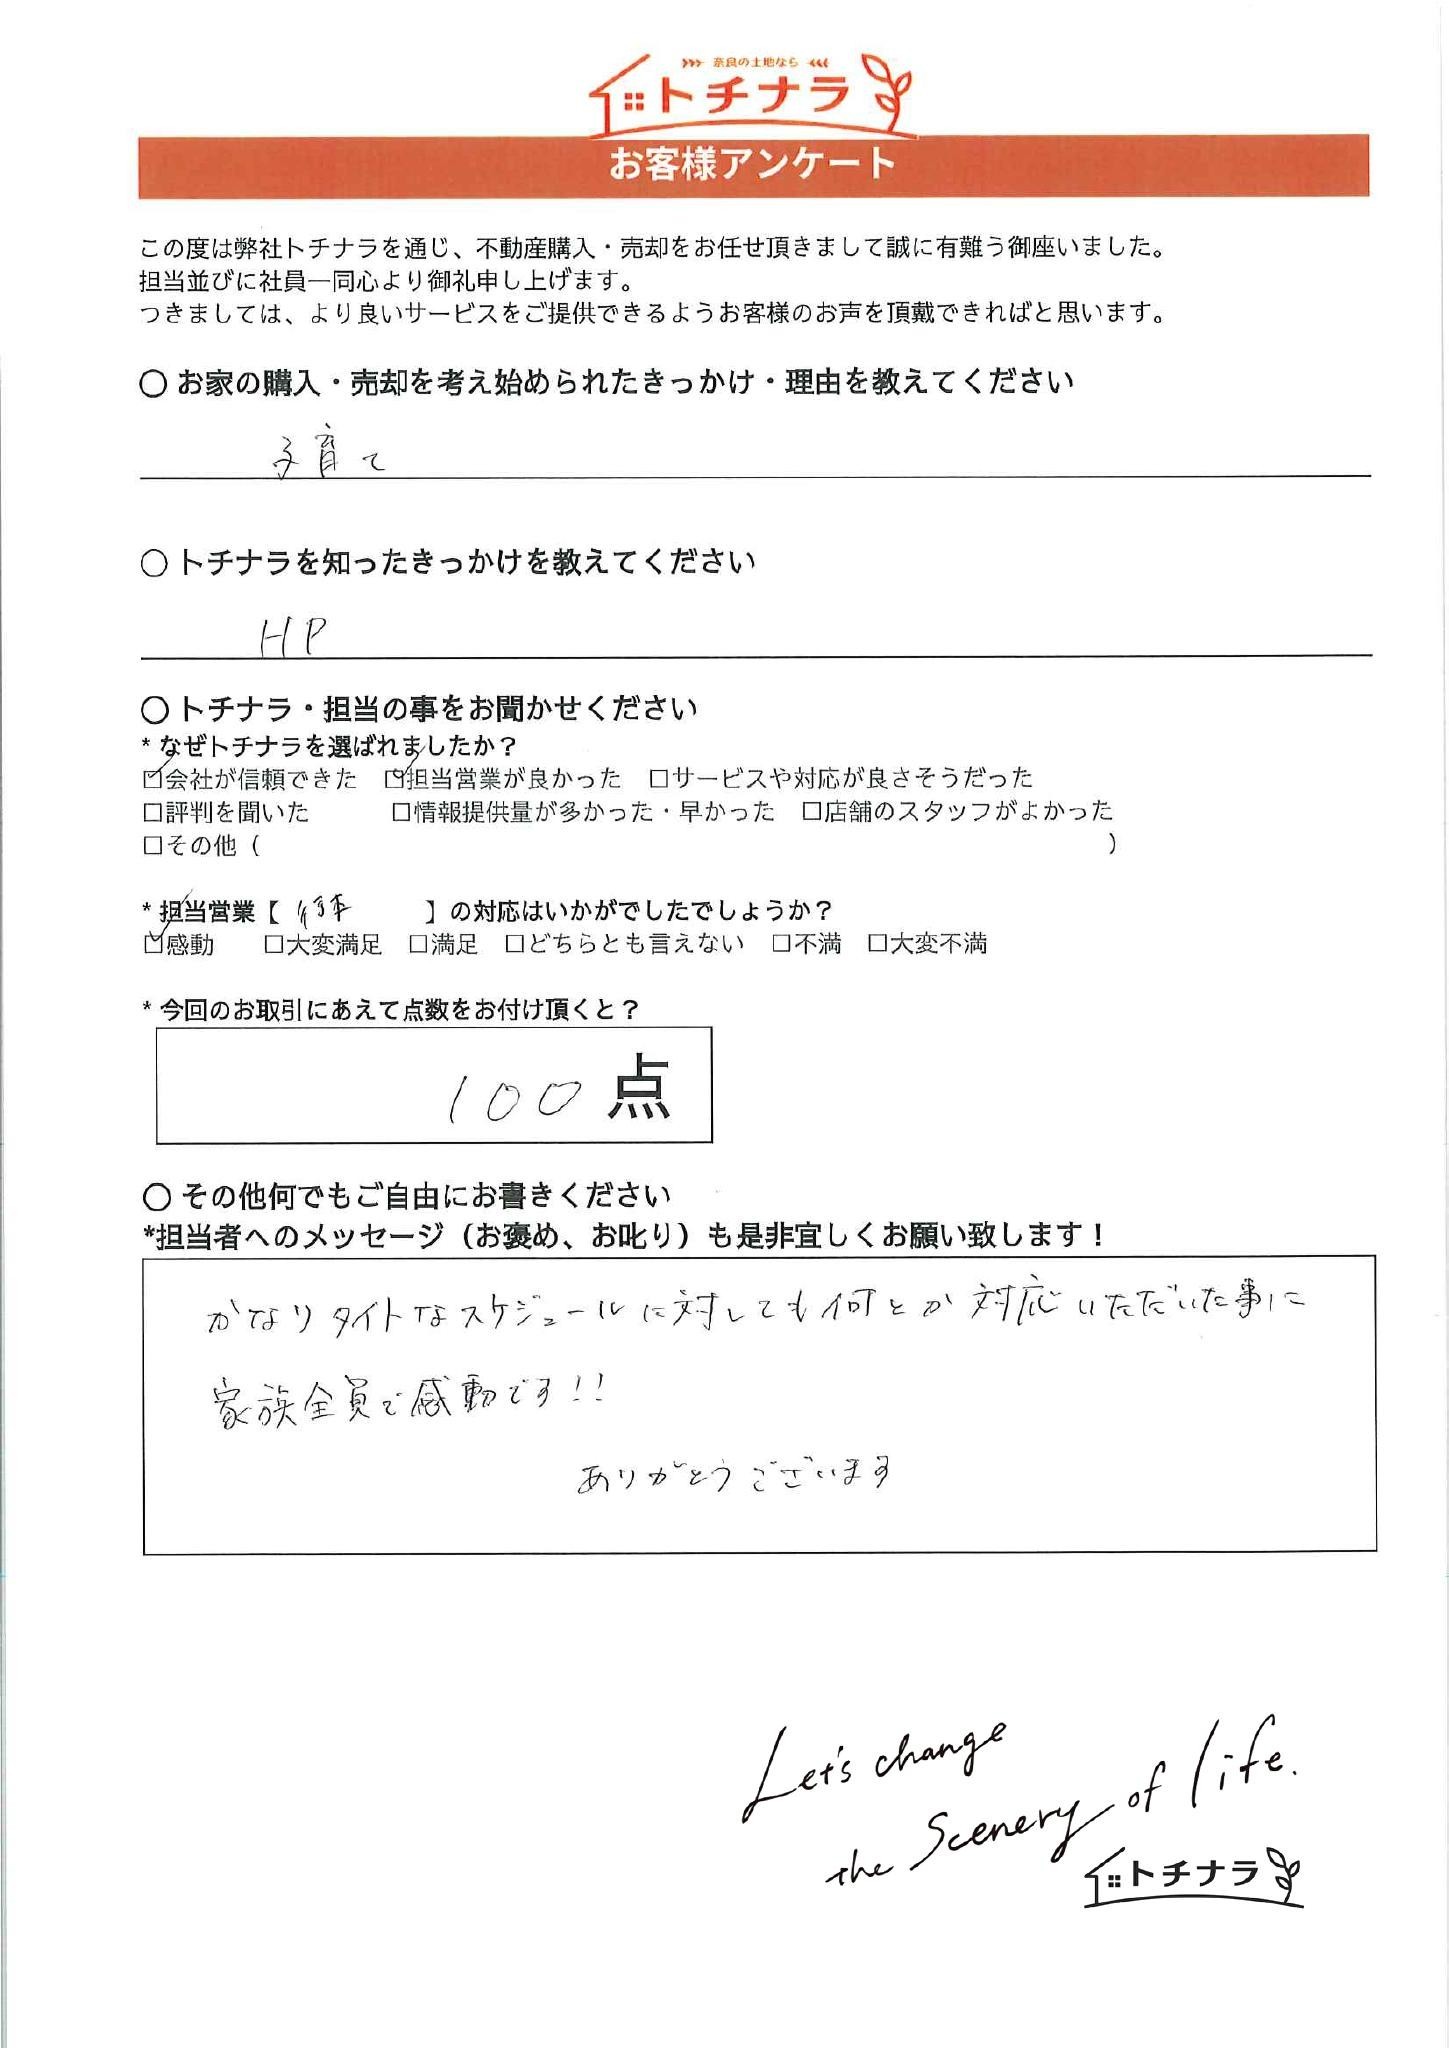 奈良の土地なら
トチナラ
お客様アンケート
この度は弊社トチナラを通じ、不動産購入・売却をお任せ頂きまして誠に有難う御座いました。
担当並びに社員一同心より御礼申し上げます。
つきましては、より良いサービスをご提供できるようお客様のお声を頂戴できればと思います。
○ お家の購入・売却を考え始められたきっかけ・理由を教えてください
子育て
○ トチナラを知ったきっかけを教えてください
HP
○ トチナラ・担当の事をお聞かせください
* なぜトチナラを選ばれましたか？
☑会社が信頼できた ☑担当営業が良かった □サービスや対応が良さそうだった
□評判を聞いた □情報提供量が多かった・早かった □店舗のスタッフがよかった
□その他（ ）
* 担当営業【 】の対応はいかがでしたでしょうか？
☑感動 □大変満足 □満足 □どちらとも言えない □不満 □大変不満
* 今回のお取引にあえて点数をお付け頂くと？
100 点
○ その他何でもご自由にお書きください
*担当者へのメッセージ（お褒め、お叱り）も是非宜しくお願い致します！
かなりタイトなスケジュールに対しても何とか対応いただいた事に
家族全員で感動です!!
ありがとうございます
Let's change
the Scenery of life.
トチナラ